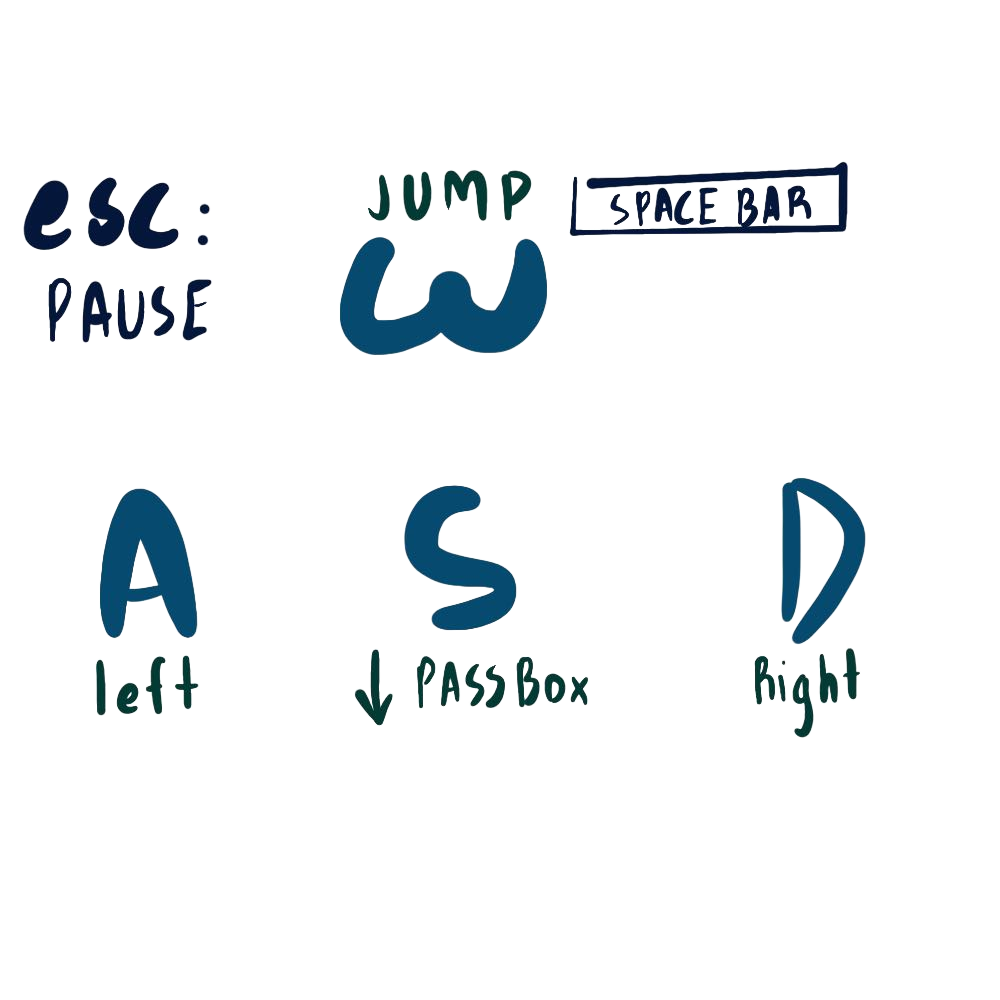 esc:
PAUSE
JUMP
W
SPACE BAR
A
left
S
↓ PASSBOX
D
Right